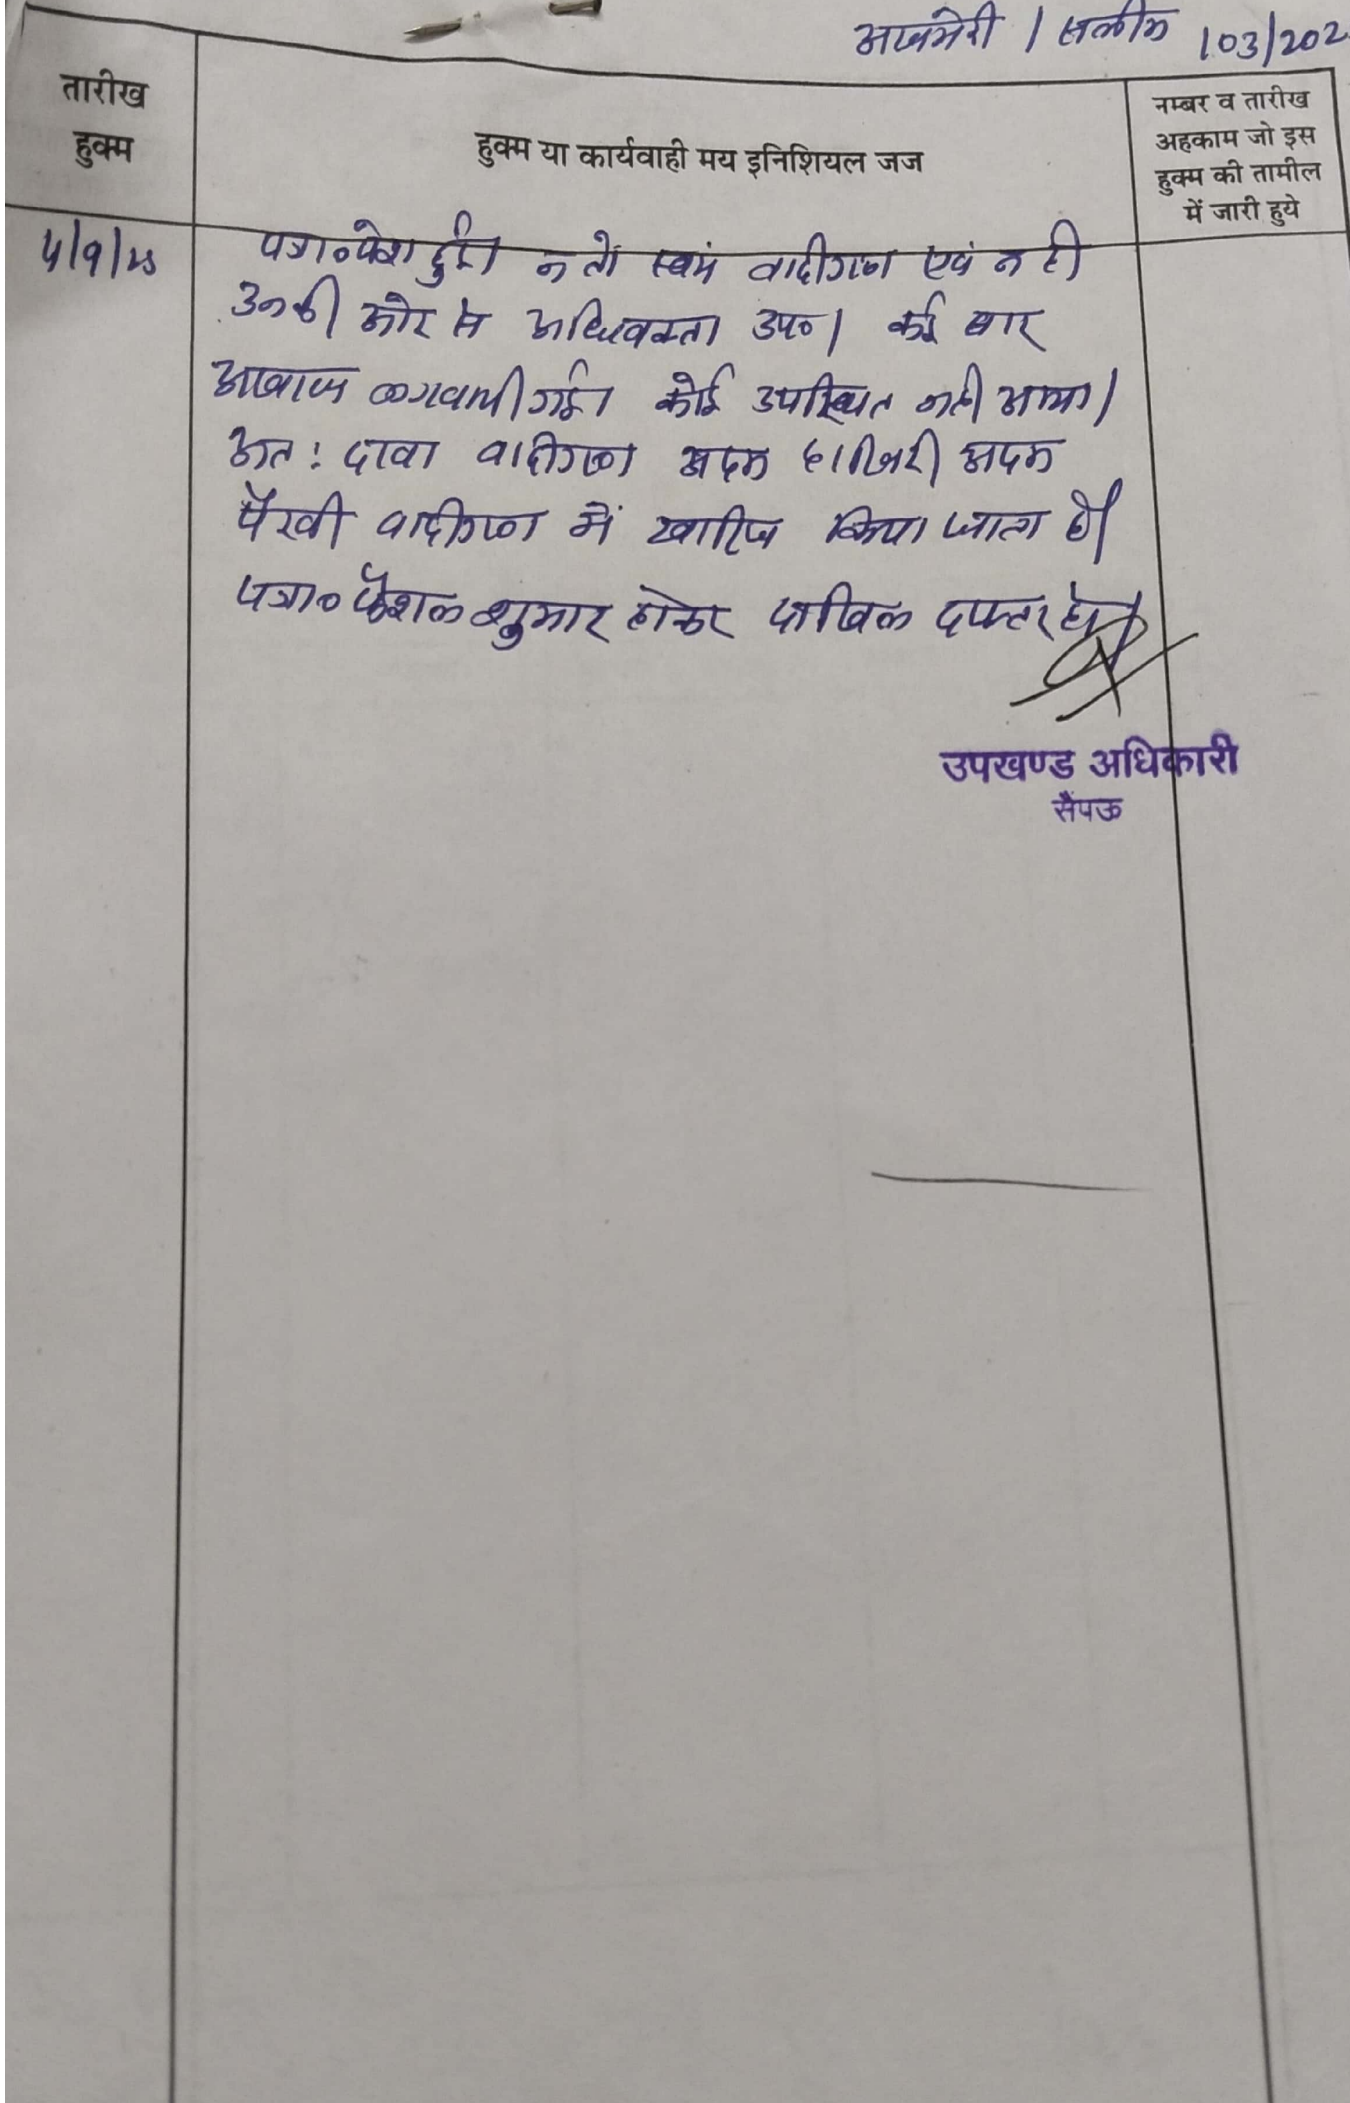 अजमेरी / सलीम 103/202
तारीख
हुक्म
हुक्म या कार्यवाही मय इनिशियल जज
नम्बर व तारीख
अहकाम जो इस
हुक्म की तामील
में जारी हुये
पत्रा० पेश हुई। न तो स्वयं वादीगण एवं न ही
उनकी ओर से अधिवक्ता उप०। कई बार
आवाज लगवायी गई। कोई उपस्थित नही आया।
अत: दावा वादीगण अदम हाजिरी अदम
पैरवी वादीगण में खारिज किया जाता है।
पत्रा० फैशल शुमार होकर दाखिल दफ्तर हो।
उपखण्ड अधिकारी
सैंपऊ